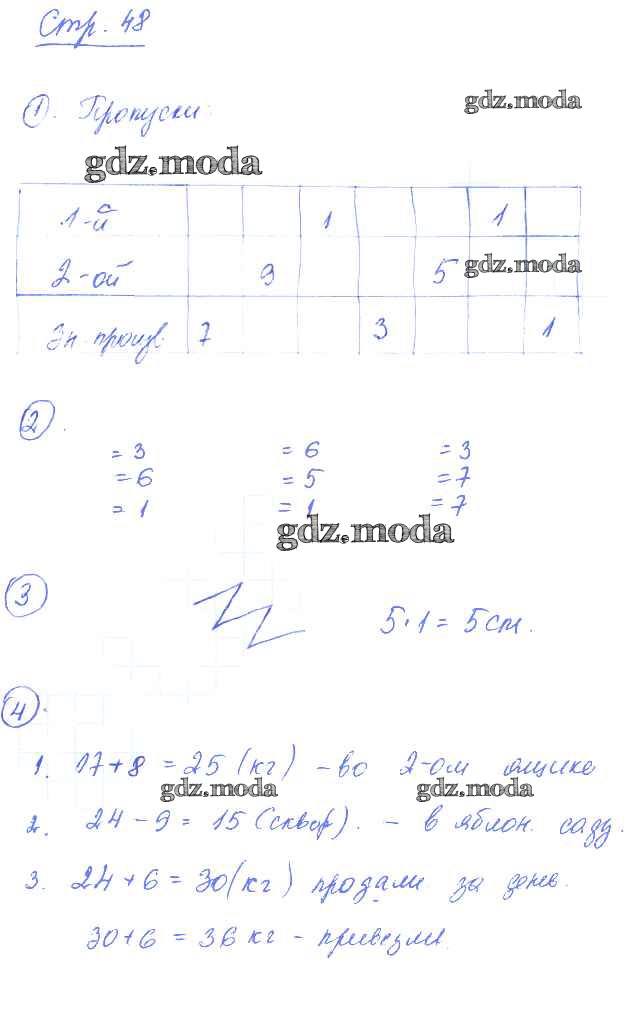 Стр. 48
1. Пропуски:
gdz.moda
gdz.moda
1-й 1 1
2-ой 9 5
gdz.moda
Зн. произв. 7 3 1
2.
= 3 = 6 = 3
= 6 = 5 = 7
= 1 = 1 = 7
gdz.moda
3 5 · 1 = 5 см.
4.
1. 17 + 8 = 25 (кг) - во 2-ом ящике
gdz.moda gdz.moda
2. 24 - 9 = 15 (сквор). - в яблон. саду.
3. 24 + 6 = 30 (кг) продали за день.
30 + 6 = 36 кг - привезли.